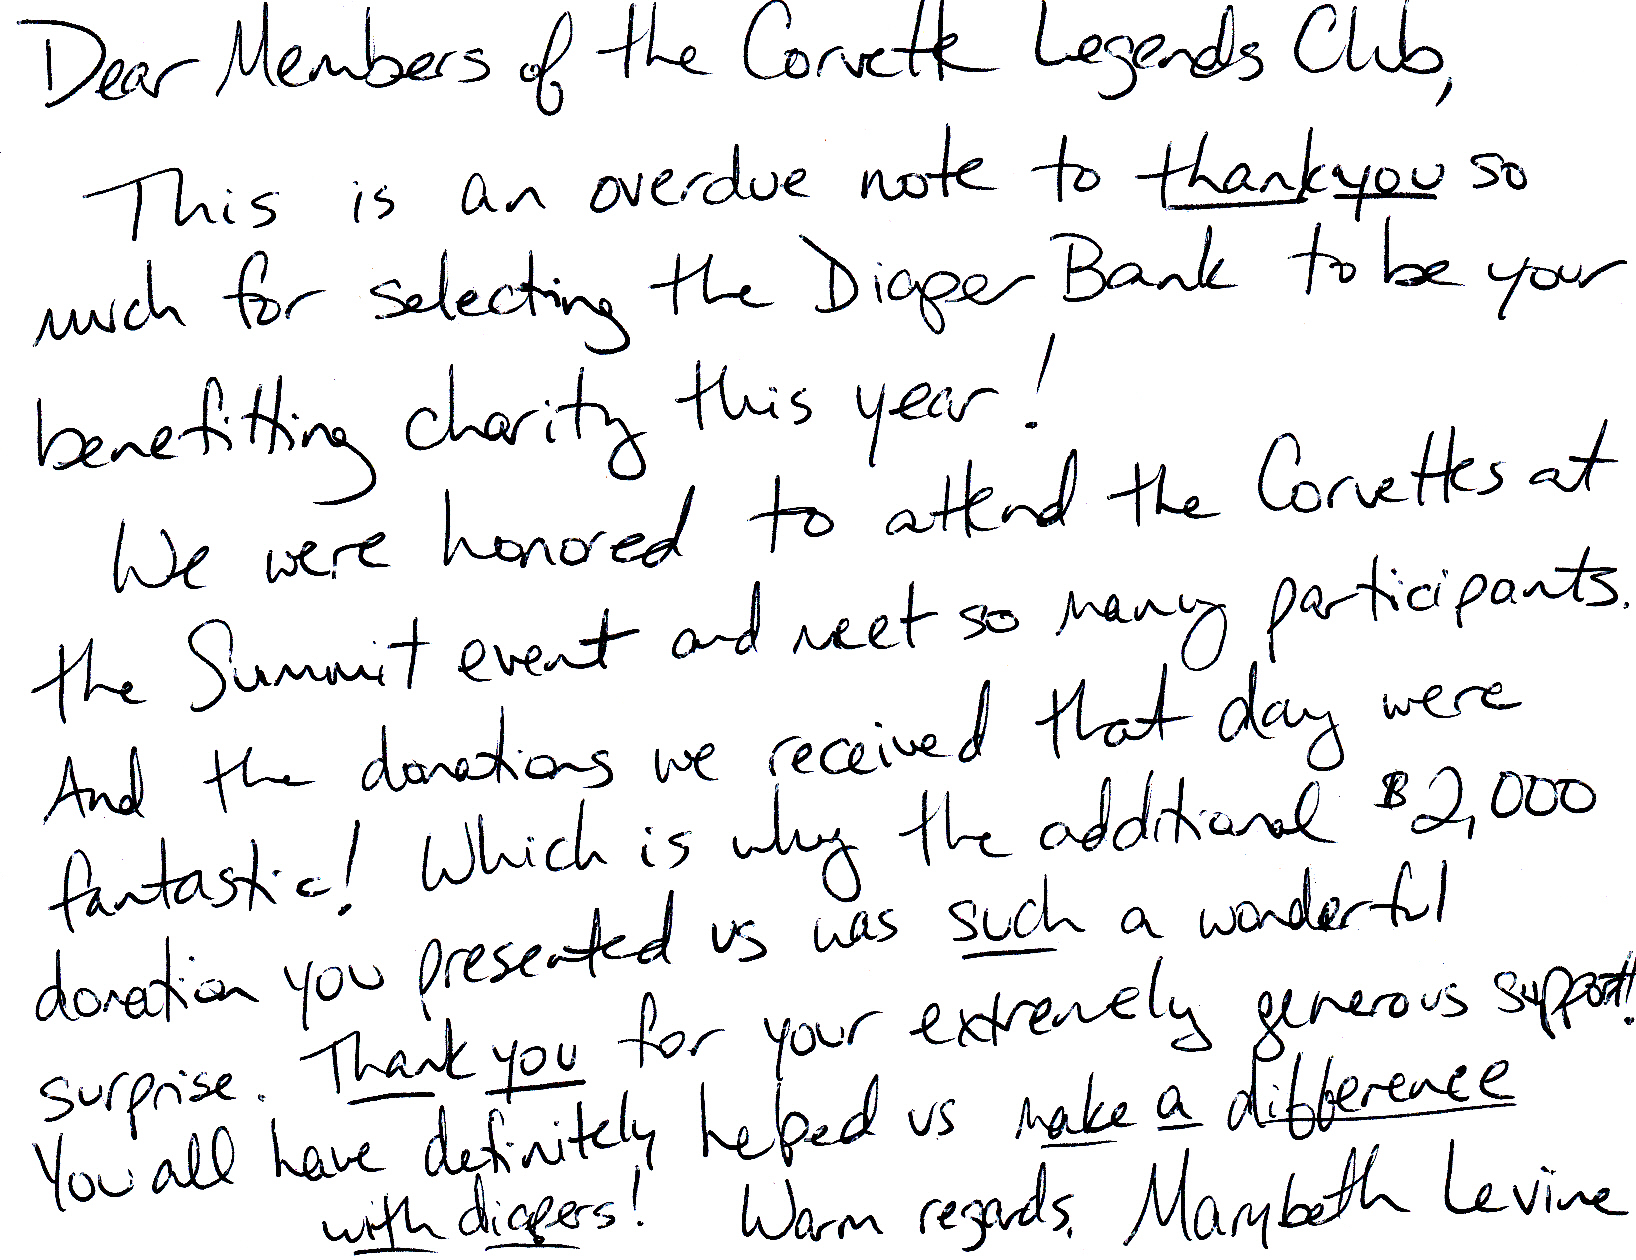 Dear Members of the Corvette Legends Club,
This is an overdue note to thank you so
much for selecting the Diaper Bank to be your
benefitting charity this year!
We were honored to attend the Corvettes at
the Summit event and meet so many participants.
And the donations we received that day were
fantastic! Which is why the additional $2,000
donation you presented us was such a wonderful
surprise. Thank you for your extremely generous support!
You all have definitely helped us make a difference
with diapers! Warm regards, Marybeth Levine